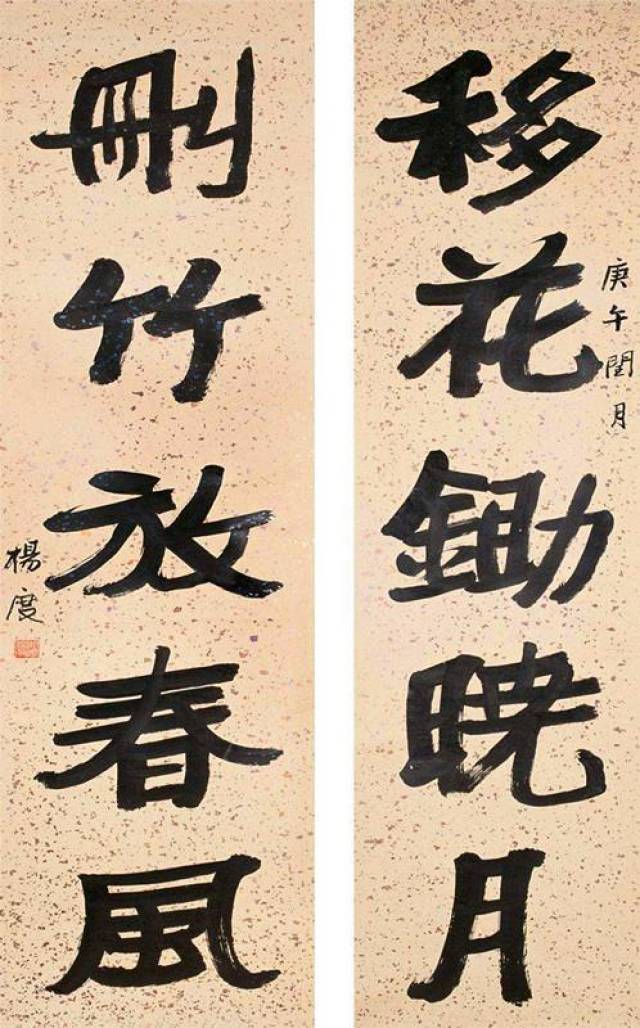 庚午閏月
移花鋤暁月
刪竹放春風
楊度